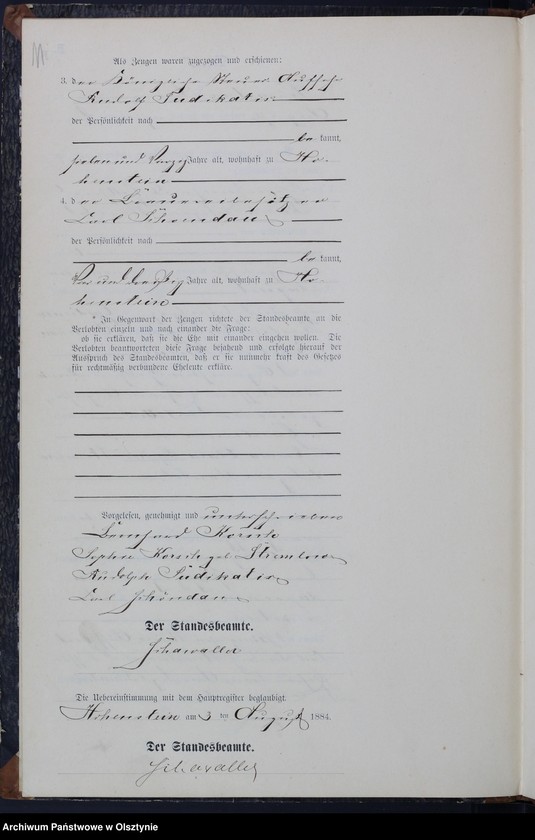 Als Zeugen waren zugezogen und erschienen:
3. der Königliche Steuer Aufseher
Rudolf Südekatis
der Persönlichkeit nach
be kannt,
sieben und Jahre alt, wohnhaft zu Ho-
henstein
4. der
Carl Schöndau
der Persönlichkeit nach
be kannt,
und Jahre alt, wohnhaft zu Ho-
henstein
" In Gegenwart der Zeugen richtete der Standesbeamte an die
Verlobten einzeln und nach einander die Frage:
ob sie erklären, daß sie die Ehe mit einander eingehen wollen. Die
Verlobten beantworteten diese Frage bejahend und erfolgte hierauf der
Ausspruch des Standesbeamten, daß er sie nunmehr kraft des Gesetzes
für rechtmäßig verbundene Eheleute erkläre.
Vorgelesen, genehmigt und unterschrieben
Bernhard
Sophie geb.
Rudolph Südekatis
Carl Schöndau
Der Standesbeamte.
Schawaller
Die Uebereinstimmung mit dem Hauptregister beglaubigt.
Hohenstein am 3 ten August 1884.
Der Standesbeamte.
Schawaller
Archiwum Państwowe w Olsztynie